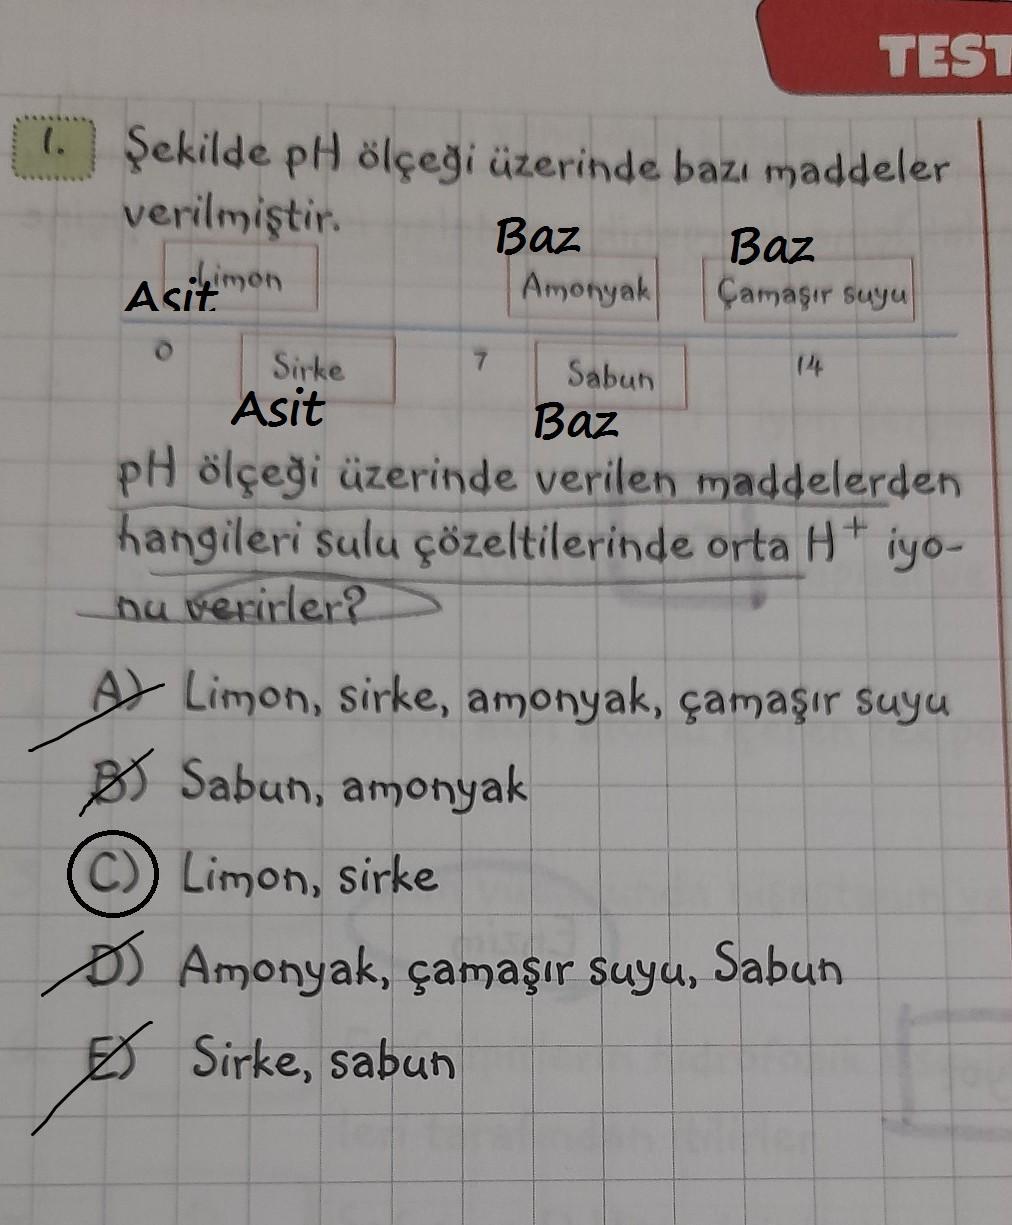 TEST
1. Şekilde pH ölçeği üzerinde bazı maddeler
verilmiştir.
Baz Baz
Limon Amonyak Çamaşır suyu
Asit
0 7 14
Sirke Sabun
Asit Baz
pH ölçeği üzerinde verilen maddelerden
hangileri sulu çözeltilerinde orta H+ iyo-
nu verirler?
A) Limon, sirke, amonyak, çamaşır suyu
B) Sabun, amonyak
C) Limon, sirke
D) Amonyak, çamaşır suyu, Sabun
E) Sirke, sabun